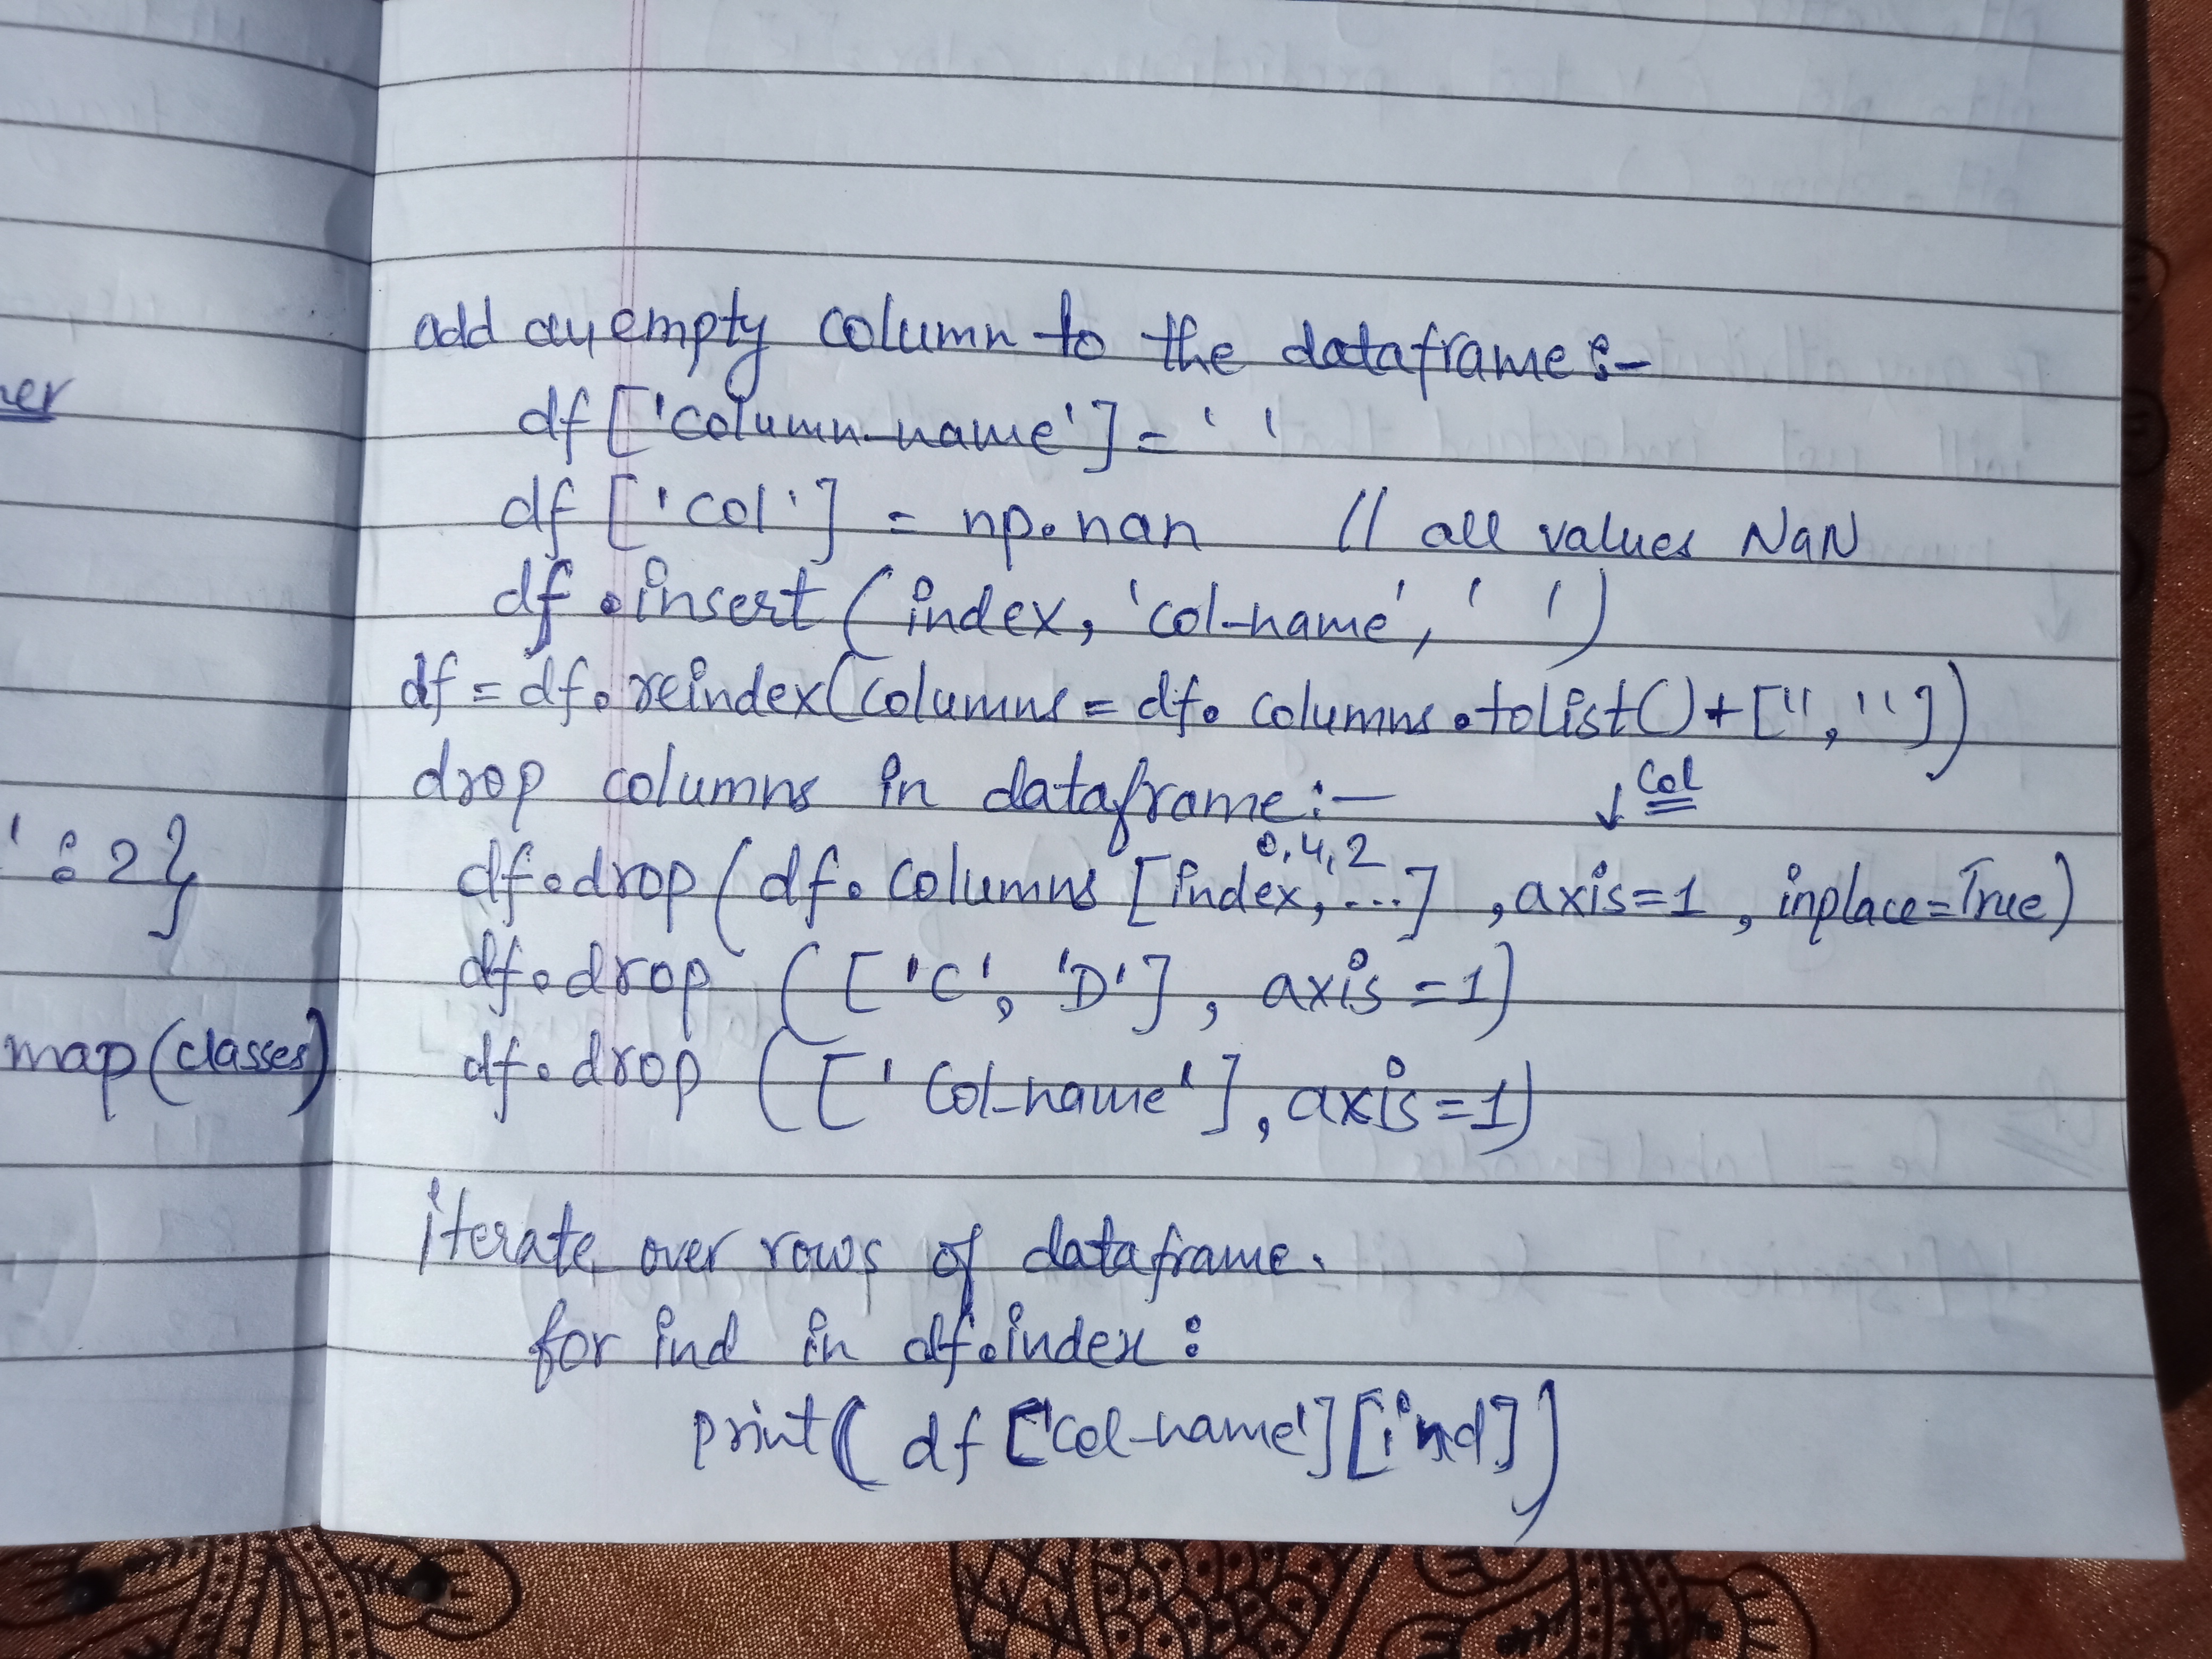 add an empty column to the dataframe :-
df['column-name'] = ' '
df ['col'] = np.nan // all values NaN
df.insert (index, 'col-name', ' ')
df = df.reindex(columns = df.columns.tolist() + ['', ''])
drop columns in dataframe :-
↓ Col
0, 4, 2
df.drop(df.columns [index, ...], axis=1, inplace=True)
df.drop (['C', 'D'], axis=1)
df.drop (['Col-name'], axis=1)
iterate over rows of dataframe.
for ind in df.index :
print( df ['col-name'][ind])
ner
' : 2}
map(classes)